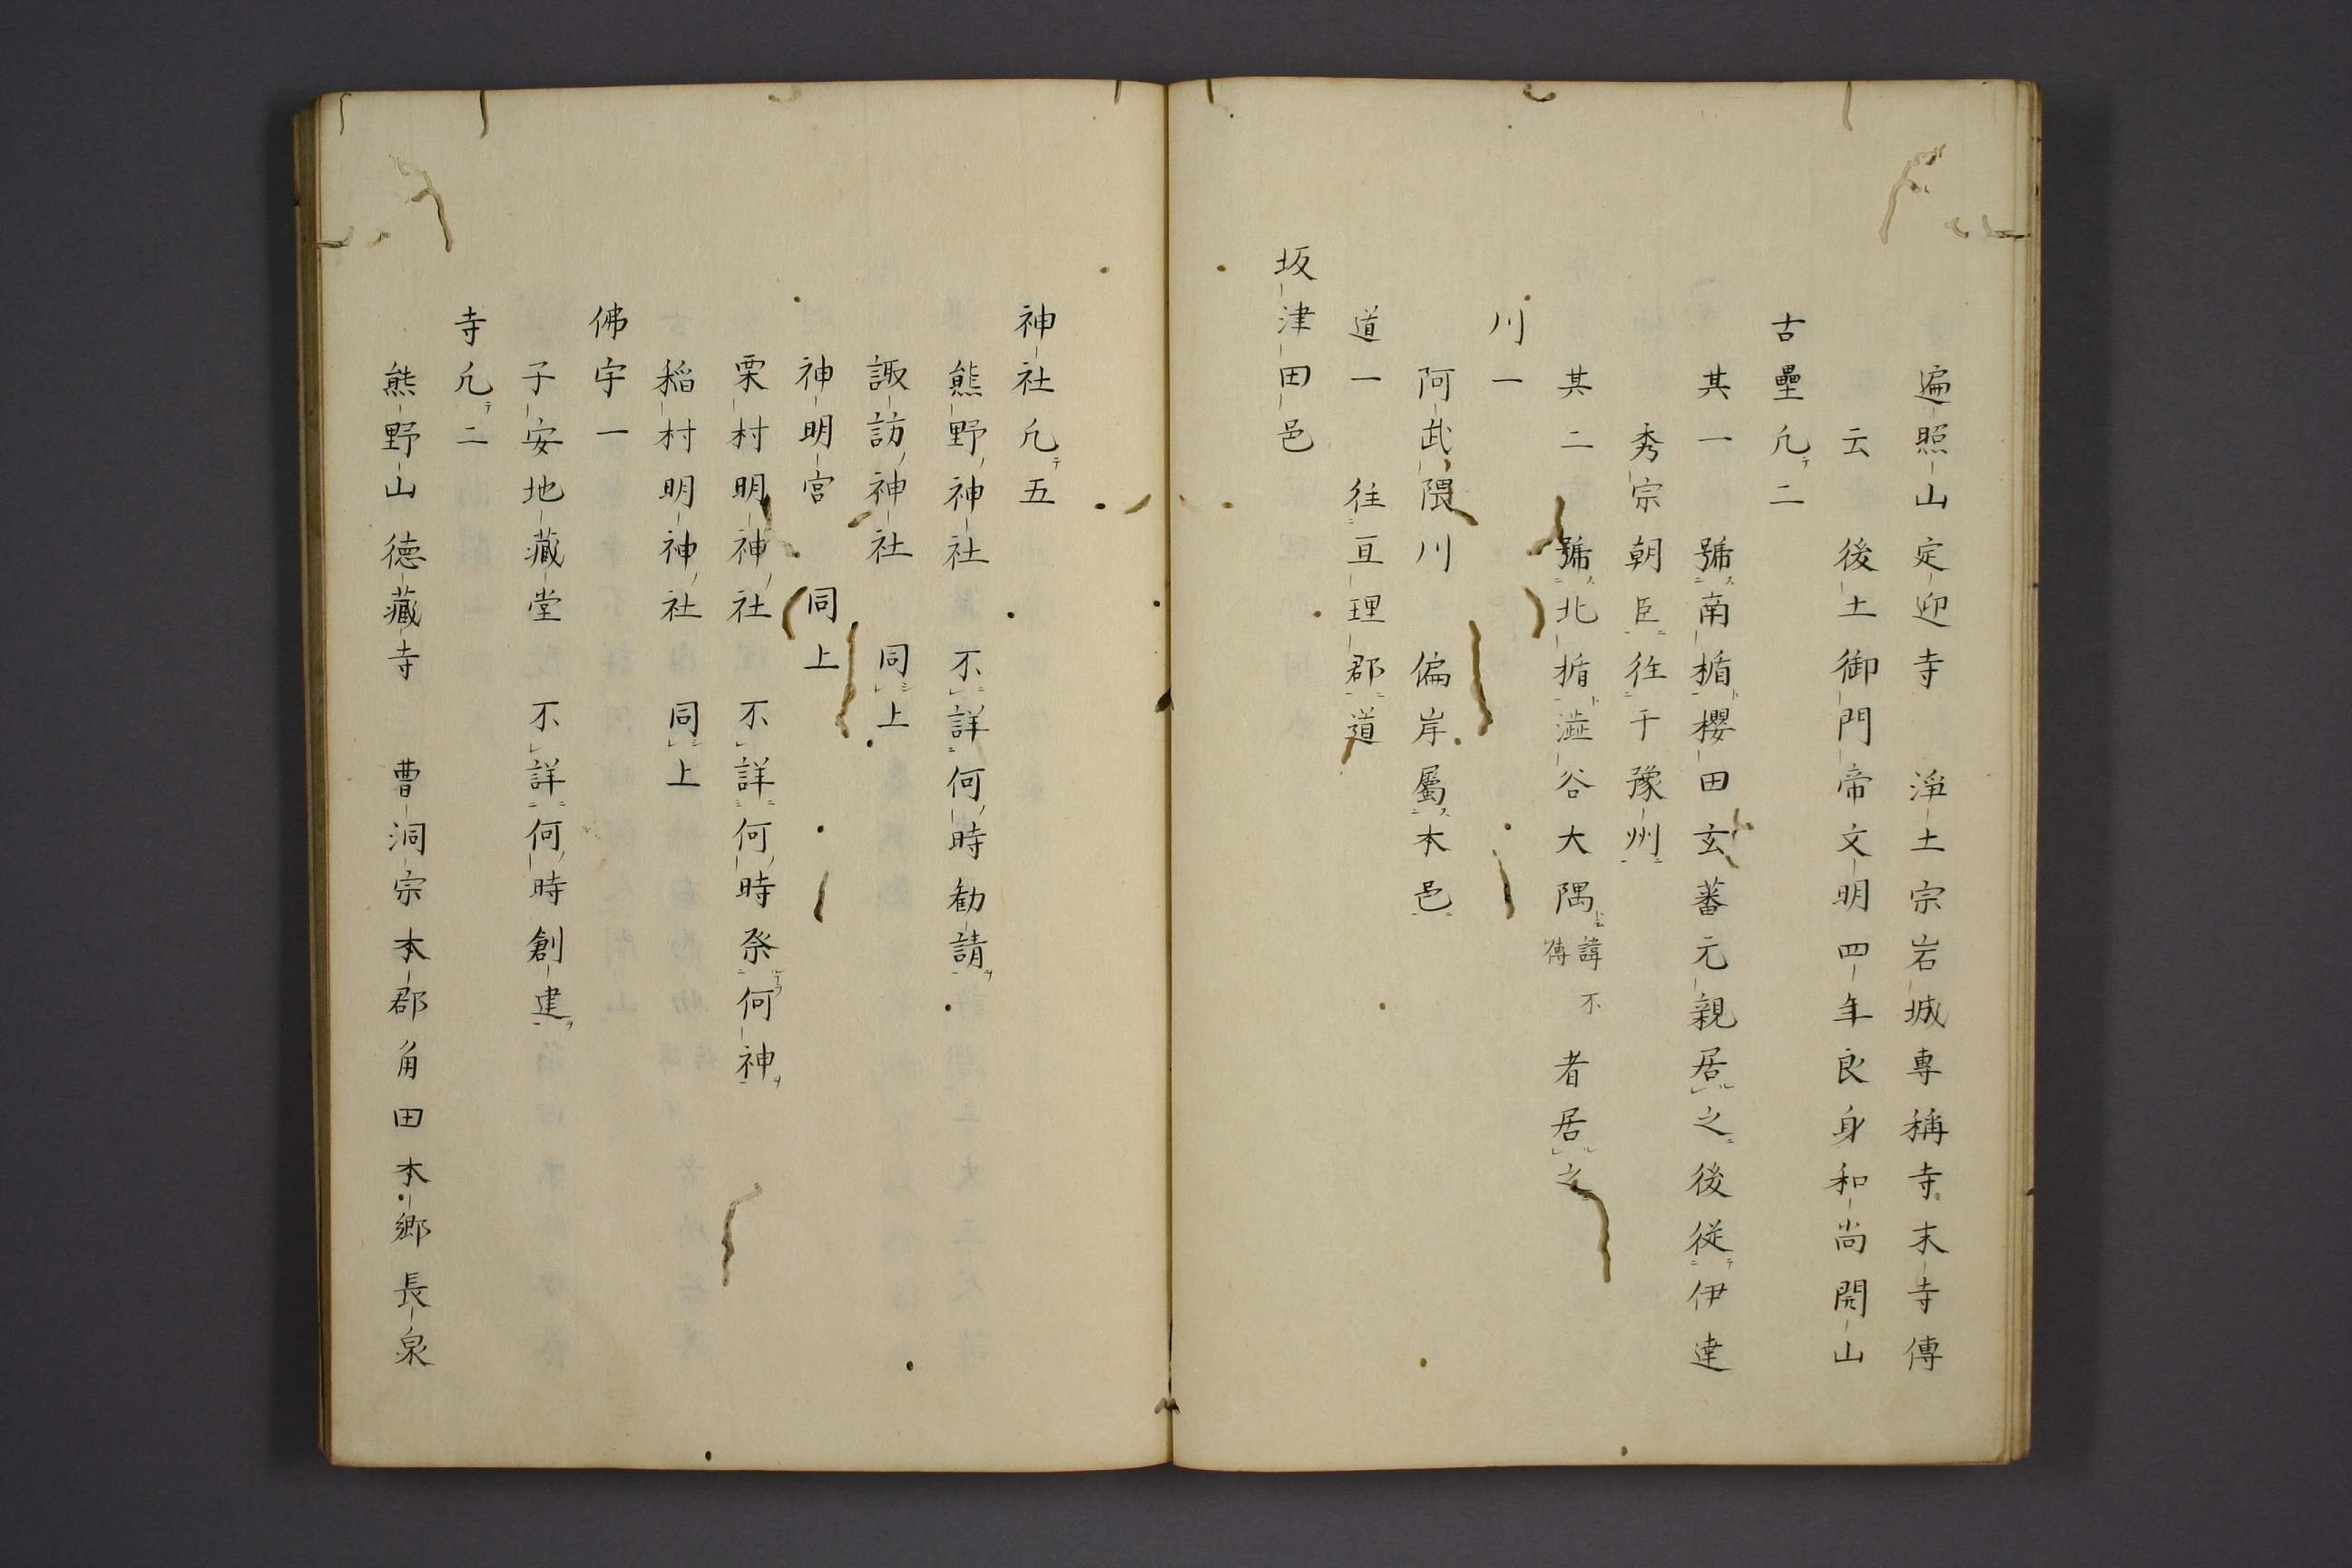 遍照山定迎寺　淨土宗岩城專稱寺末寺傳
云　後土御門帝文明四年良身和尚開山
古壘凢テ二
其一　號ス南楯ト櫻田玄蕃元親居ル之後従テ伊達
秀宗朝臣往于豫州
其二　號ス北楯ト澁谷大隅諱不傳者居ル之
川一
阿武隈川　偏岸屬ス本邑
道一　往亘理郡道
坂津田邑
神社凢テ五
熊野神社　不詳何時勧請ヲ
諏訪神社　同上
神明宮　同上
栗村明神社　不詳何時祭何神ヲ
稲村明神社　同上
佛宇一
子安地藏堂　不詳何時創建ヲ
寺凢テ二
熊野山徳藏寺　曹洞宗本郡角田本郷長泉